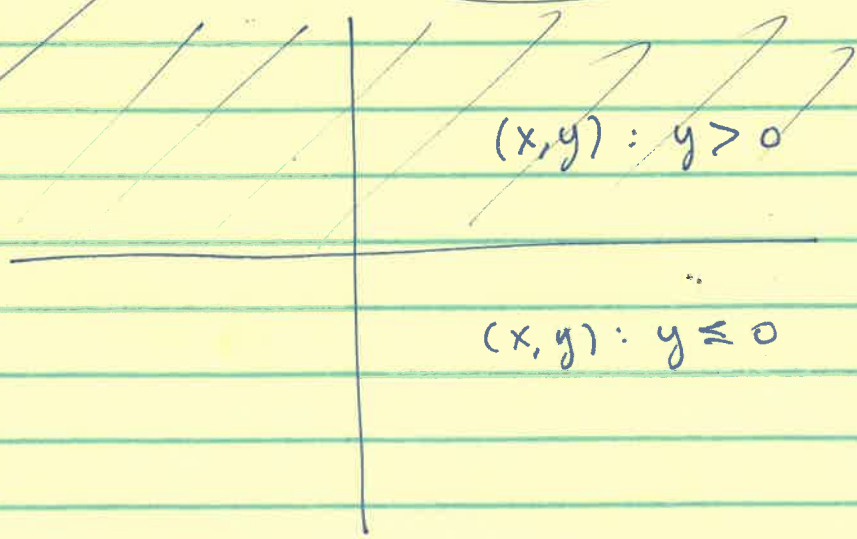 (x,y) : y > 0
(x,y) : y ≤ 0